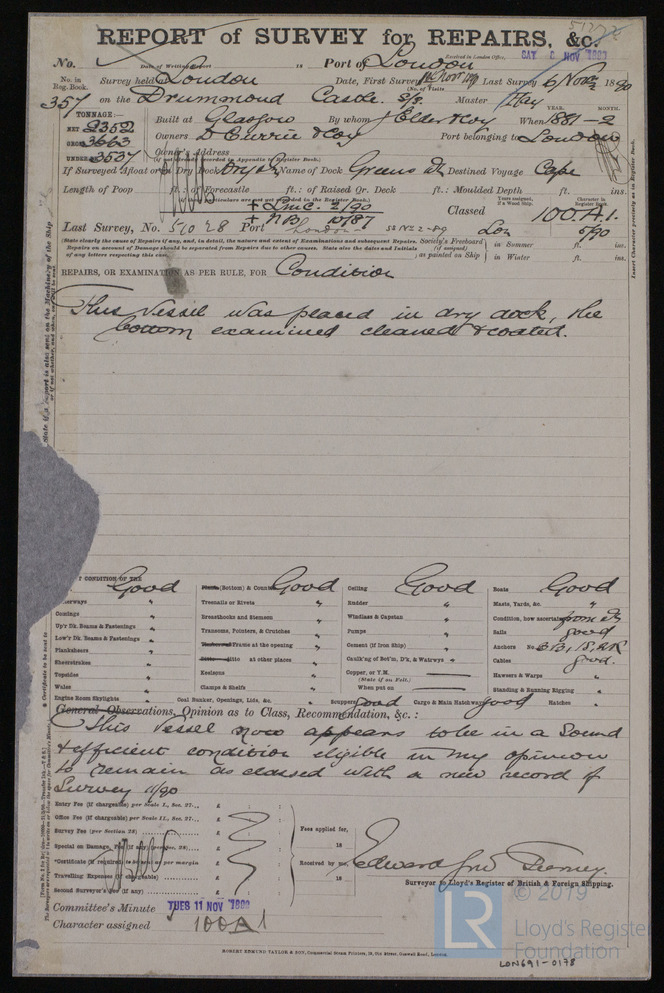 REPORT of SURVEY for REPAIRS, &c.
No. Date of Writing Report is Port of London Received in London Office,
SAT 8 NOV 1890
No. in Reg. Book. Survey held at London Date, First Survey Last Survey 6 Novr 1890
(No. of Visits
357 on the Drummond Castle. S/s. Master May
TONNAGE:— YEAR. MONTH.
NET 2352 Built at Glasgow By whom J Elder & Coy When 1881-2
GROSS 3663 Owners D Currie & Coy Port belonging to London
UNDER 3537 Owner's Address
(if not already recorded in Appendix of Register Book.)
If Surveyed Afloat or in Dry Dock Dry Dk Name of Dock Greens Dk Destined Voyage Cape
Length of Poop ft. : of Forecastle ft. : of Raised Qr. Deck ft. : Moulded Depth ft. ins.
+ LMC. 2/90 Classed 100.A.1.
+ NB 10/87 5/90
Last Survey, No. 51028 Port London Lon
(State clearly the cause of Repairs if any, and, in detail, the nature and extent of Examinations and subsequent Repairs. Society's Freeboard in Summer ft. ins.
Repairs on account of Damage should be separated from Repairs due to other causes. State also the dates and Initials (if assigned)
of any letters respecting this case. as painted on Ship in Winter ft. ins.
REPAIRS, OR EXAMINATION AS PER RULE, FOR Condition
This Vessel was placed in dry dock, the
bottom examined cleaned & coated.
CONDITION OF THE Good (Bottom) & Counter Good Ceiling Good Boats Good
Treenails or Rivets " Rudder " Masts, Yards, &c. "
Comings " Breasthooks and Stemson " Windlass & Capstan " Condition, how ascertained from Dk
Up'r Dk. Beams & Fastenings " Transoms, Pointers, & Crutches " Pumps " Sails good
Low'r Dk. Beams & Fastenings " Frame at the opening " Cement (if Iron Ship) " Anchors No. 3B, 1S, 2K
Planksheers " at other places " Caulk'ng of Bot'm, D'k, & Watrwys " Cables good.
Sheerstrakes " Keelsons " Copper, or Y.M. Hawsers & Warps "
Topsides " Clamps & Shelfs " (State if on Felt.) Standing & Running Rigging "
Wales " When put on
Engine Room Skylights " Coal Bunker, Openings, Lids, &c. " Scuppers Good Cargo & Main Hatchways good Hatches "
General Observations, Opinion as to Class, Recommendation, &c. :
This Vessel now appears to be in a Sound
& efficient condition eligible in my opinion
to remain as classed with a new record of
Survey 11/90
Entry Fee (if chargeable) per Scale I., Sec. 27... £ : :
Office Fee (if chargeable) per Scale II., Sec. 27... £ : :
Survey Fee (per Section 28) £ : : Fees applied for,
Special on Damage, Fee (if any) (per Sec. 28) £ : : 18
*Certificate (if required) to be sent as per margin £ : : Received by me, Edward Jno
Travelling Expenses (if chargeable) £ : : 18
Second Surveyor's Fee (if any) £ : : Surveyor to Lloyd's Register of British & Foreign Shipping.
Committee's Minute TUES 11 NOV 1890
Character assigned 100A1
ROBERT EDMUND TAYLOR & SON, Commercial Steam Printers, 19, Old Street, Goswell Road, London.
© 2019
LR
Lloyd's Register
Foundation
LON691-0178